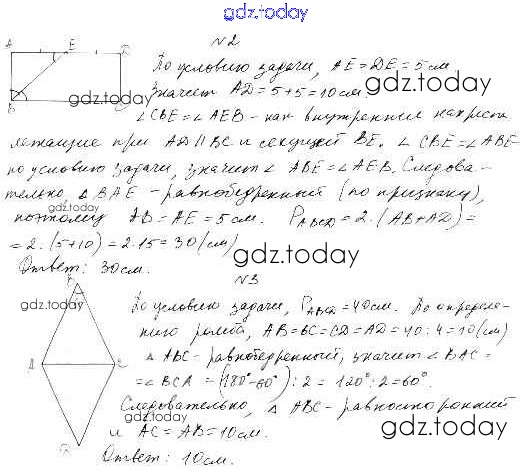 gdz.today
N2
A E D
По условию задачи, AE = DE = 5 см
gdz.today
Значит AD = 5+5 = 10см.
B
gdz.today
∠CBE = ∠AEB - как внутренние накрест
лежащие при AD || BC и секущей BE. ∠CBE = ∠ABE
по условию задачи, значит ∠ABE = ∠AEB. Следова-
тельно △BAE - равнобедренный (по признаку),
gdz.today
поэтому AB = AE = 5см. P ABCD = 2·(AB+AD) =
= 2·(5+10) = 2·15 = 30 (см)
gdz.today
Ответ: 30см.
N3
B
По условию задачи, P ABCD = 40см. По определе-
gdz.today
нию ромба, AB = BC = CD = AD = 40:4 = 10 (см)
△ABC - равнобедренный, значит ∠BAC =
A C
= ∠BCA = (180°-60°):2 = 120°:2 = 60°.
Следовательно, △ABC - равносторонний
и AC = AB = 10см.
gdz.today
D
Ответ: 10см.